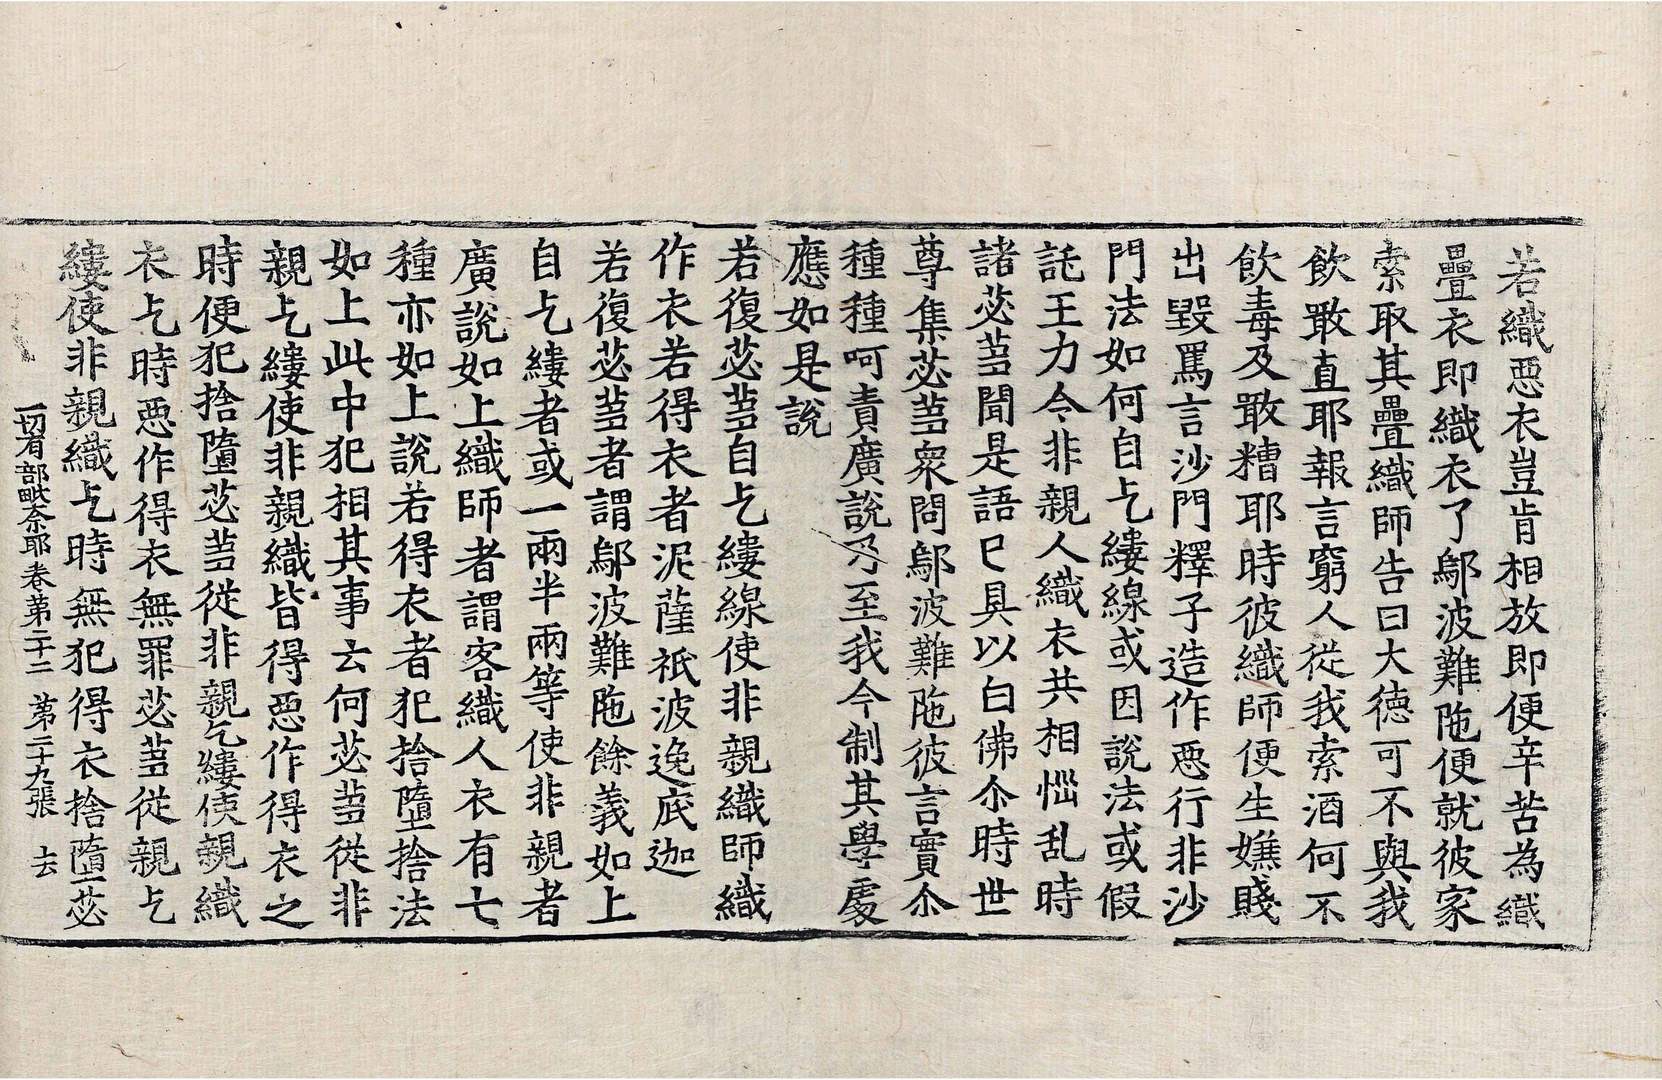 若織惡衣豈肯相放即便辛苦為織
疊衣即織衣了鄔波難陁便就彼家
索取其疊織師告曰大德可不與我
飲噉直耶報言窮人從我索酒何不
飲毒及噉糟耶時彼織師便生嫌賤
出毀罵言沙門釋子造作惡行非沙
門法如何自乞縷線或因說法或假
託王力令非親人織衣共相惱乱時
諸苾蒭聞是語已具以白佛尒時世
尊集苾蒭衆問鄔波難陁彼言實尒
種種呵責廣說乃至我今制其學處
應如是說
若復苾蒭自乞縷線使非親織師織
作衣若得衣者泥薩祇波逸底迦
若復苾蒭者謂鄔波難陁餘義如上
自乞縷者或一兩半兩等使非親者
廣說如上織師者謂客織人衣有七
種亦如上說若得衣者犯捨墮捨法
如上此中犯相其事云何苾蒭從非
親乞縷使非親織皆得惡作得衣之
時便犯捨墮苾蒭從非親乞縷使親織
衣乞時惡作得衣無罪苾蒭從親乞
縷使非親織乞時無犯得衣捨墮苾
一切有部毗奈耶卷第二十二 第二十九張 去